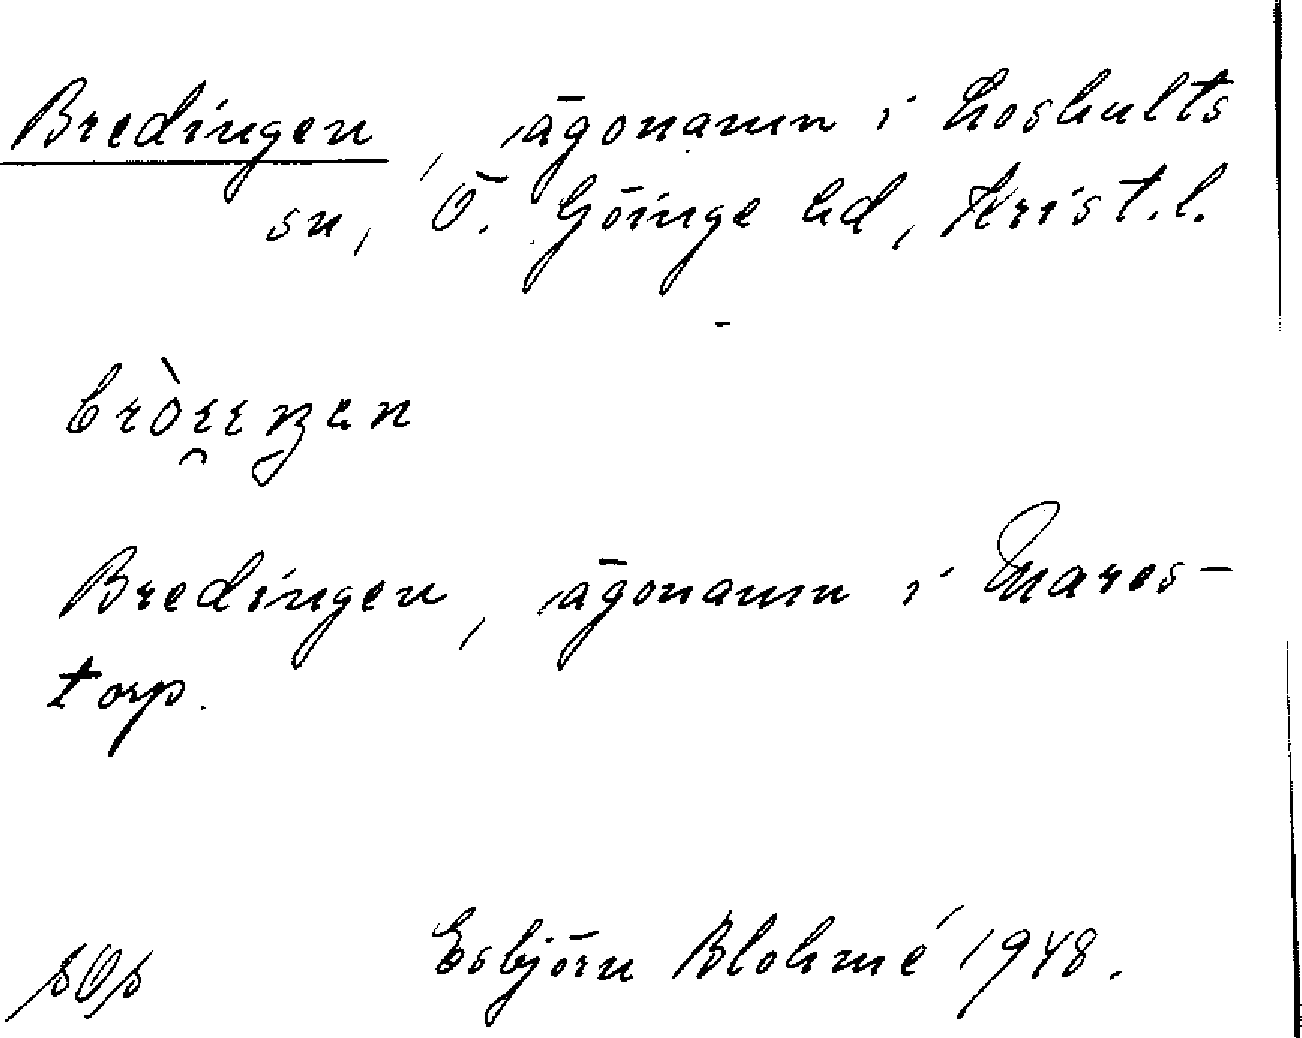 Bredingen, ägonamn i Loshults
sn, Ö. Göinge hd, Krist.l.
Bredingen, ägonamn i Mares-
torp.
Esbjörn Blohmé 1948.